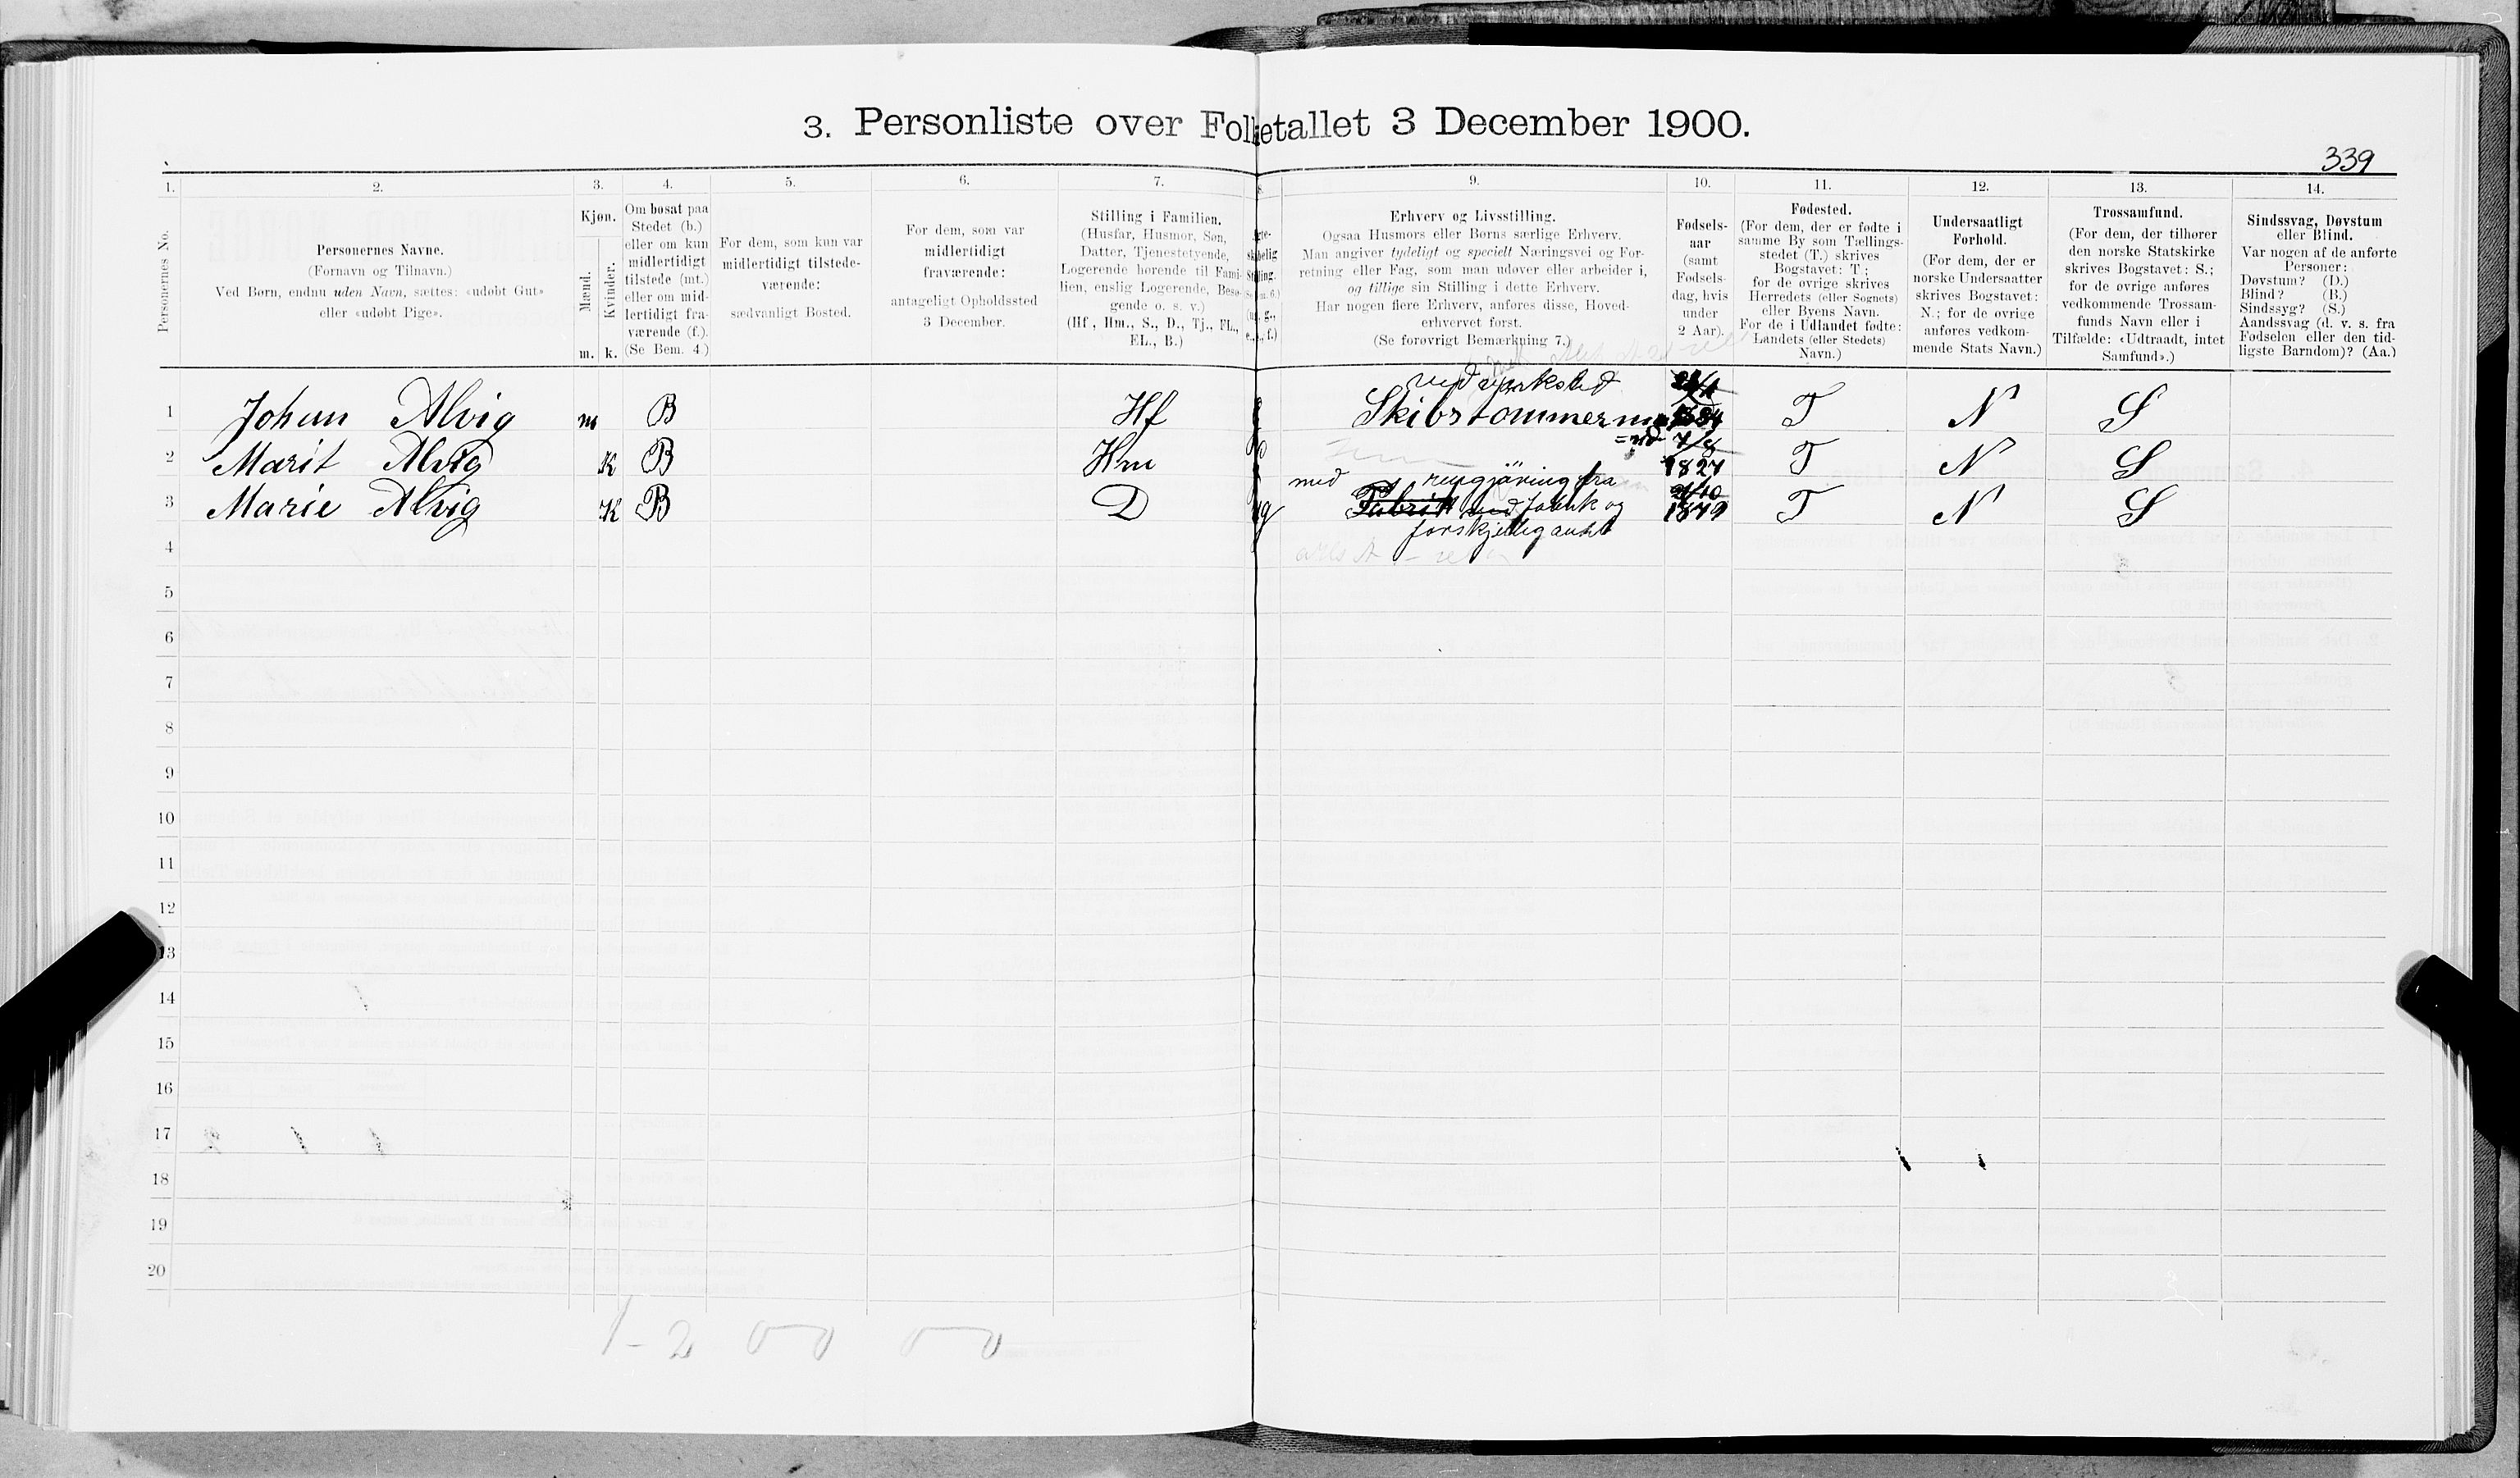 3. Personliste over Folketallet 3 December 1900.
339
1. 2. 3. 4. 5. 6. 7. 8. 9. 10. 11. 12. 13. 14.
Personernes No.
Personernes Navne.
(Fornavn og Tilnavn.)
Ved Børn, endnu uden Navn, sættes: «udøbt Gut»
eller «udøbt Pige».
Kjøn.
Mænd.
Kvinder.
m. k.
Om bosat paa
Stedet (b.)
eller om kun
midlertidigt
tilstede (mt.)
eller om mid-
lertidigt fra-
værende (f.).
(Se Bem. 4.)
For dem, som kun var
midlertidigt tilstede-
værende:
sædvanligt Bosted.
For dem, som var
midlertidigt
fraværende:
antageligt Opholdssted
3 December.
Stilling i Familien.
(Husfar, Husmor, Søn,
Datter, Tjenestetyende,
Logerende hørende til Fami-
lien, enslig Logerende, Besø-
gende o. s. v.)
(Hf., Hm., S., D., Tj., FL.,
EL., B.)
Erhverv og Livsstilling.
Ogsaa Husmors eller Børns særlige Erhverv.
Man angiver tydeligt og specielt Næringsvei og For-
retning eller Fag, som man udøver eller arbeider i,
og tillige sin Stilling i dette Erhverv.
Har nogen flere Erhverv, anføres disse, Hoved-
erhvervet først.
(Se forøvrigt Bemærkning 7.)
Fødsels-
aar
(samt
Fødsels-
dag, hvis
under
2 Aar).
Fødested.
(For dem, der er fødte i
samme By som Tællings-
stedet (T.) skrives
Bogstavet: T;
for de øvrige skrives
Herredets (eller Sognets)
eller Byens Navn.
For de i Udlandet fødte:
Landets (eller Stedets)
Navn.)
Undersaatligt
Forhold.
(For dem, der er
norske Undersaatter
skrives Bogstavet:
N.; for de øvrige
anføres vedkom-
mende Stats Navn.)
Trossamfund.
(For dem, der tilhører
den norske Statskirke
skrives Bogstavet: S.;
for de øvrige anføres
vedkommende Trossam-
funds Navn eller i
Tilfælde: «Udtraadt, intet
Samfund».)
Sindssvag, Døvstum
eller Blind.
Var nogen af de anførte
Personer:
Døvstum? (D.)
Blind? (B.)
Sindssyg? (S.)
Aandssvag (d. v. s. fra
Fødselen eller den tid-
ligste Barndom)? (Aa.)
ved verksted
1 Johan Alvig m B Hf Skibstømmermand T N S
7/8
2 Marit Alvig K B Hm 1827 T N S
med rengjøring fra
3 Marie Alvig K B D ug Fabrik fabrik og 1849 T N S
forskjellig andet
4
5
6
7
8
9
10
11
12
13
14
15
16
17
18
19
20
1-2 0-0 0-0